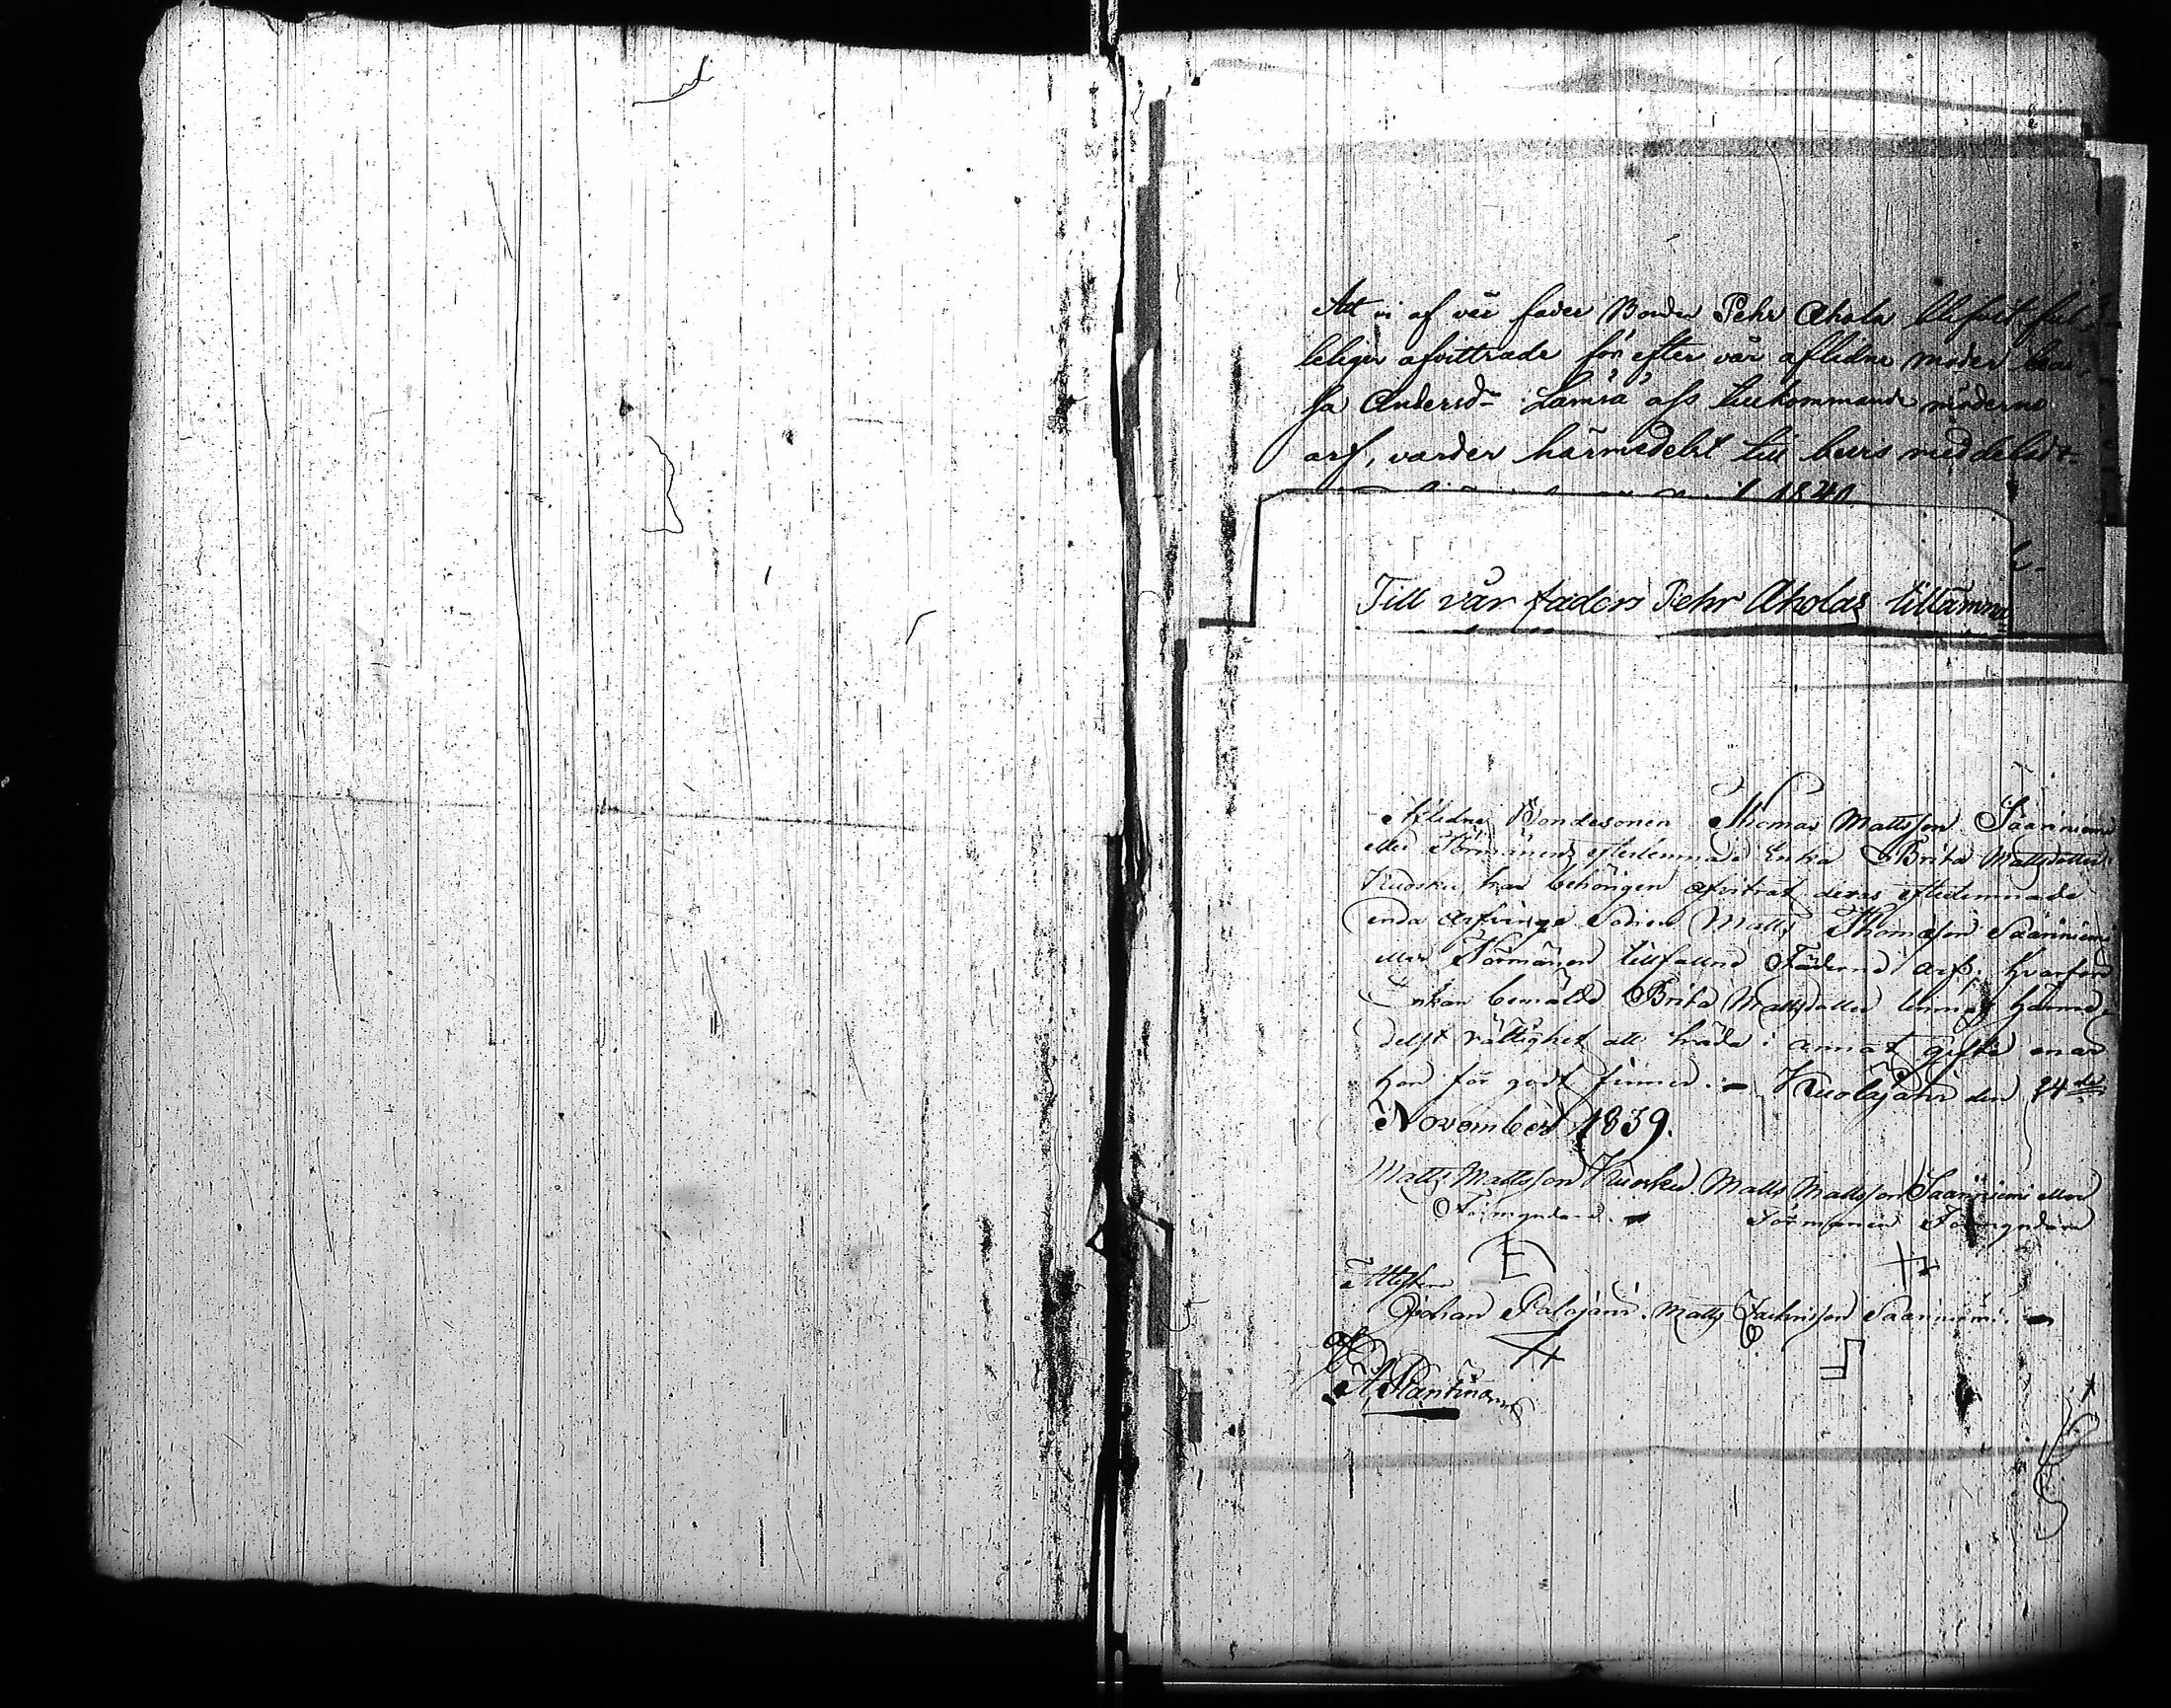 Att vi af vår fader Bonden Pehr Ahola blifvit ful-
leligen afvittrade för efter vår aflidne moder
sa Andersdr Lämsä oss tillkommande möderne
arf, varder härmedelst till bevis meddeladt
1840
Till vår faders Pehr Aholas tillämna
Aflidne Bondesonen Thomas Mattsson Saariniemi
eller Törmänens efterlemnade Enka Brita Mattsdotter
Kuosku har behörigen afvitrat deras efterlemnade
enda arfvinge Sonen Matts Thomasson Saariniemi
eller Törmänen tillfallne Fäderne arf; hvarföre
Enkan bemälde Brita Mattsdotter lemnas härme-
delst rättighet att träda i annat gifte enär
hon för godt finner. - Kuolajärvi den 24de
November 1839.
Matts Mattsson Kuosku Matts Mattsson Saariniemi eller
Förmyndare. Törmänen Förmyndare
Attestera
Johan Palojärvi. Matts Zachrisson Saariniemi.
A Plantman